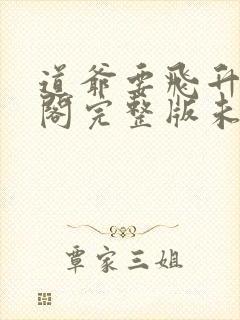 道爷要飞升
阁完整版未
覃家三姐